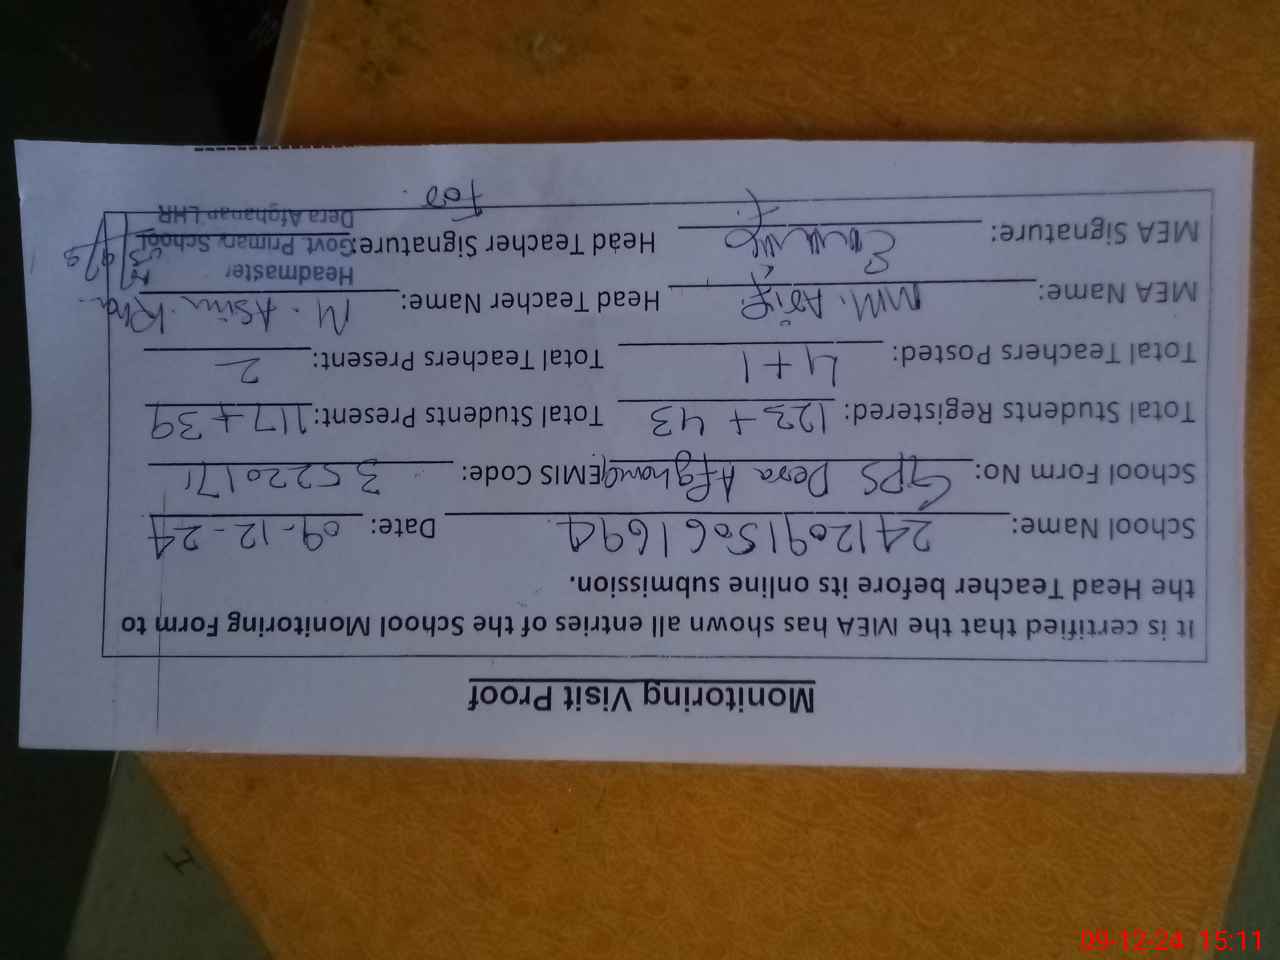 Monitoring Visit Proof
It is certified that the MEA has shown all entries of the School Monitoring Form to
the Head Teacher before its online submission.
School Name: 24120915061694 Date: 09-12-24
School Form No: GPS Dera Afghana EMIS Code: 35220171
Total Students Registered: 123 + 43 Total Students Present: 117 + 39
Total Teachers Posted: 4+1 Total Teachers Present: 2
MEA Name: MM. Asif Head Teacher Name: M. Asim Kha
Headmaster
MEA Signature: Head Teacher Signature: Govt. Primary School
Dera Afghanan LHR
For
09-12-24 15:11